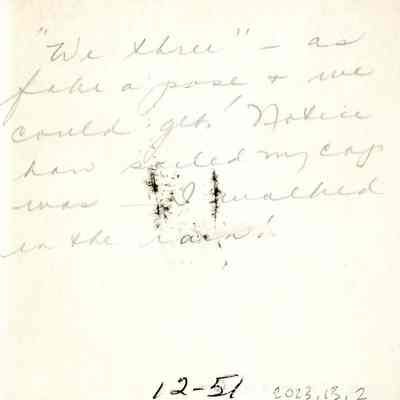 "We three" – as
fake a pose & we
could get! Notice
how soiled my cap
was – I walked
in the rain!
12-51 2023.13.2